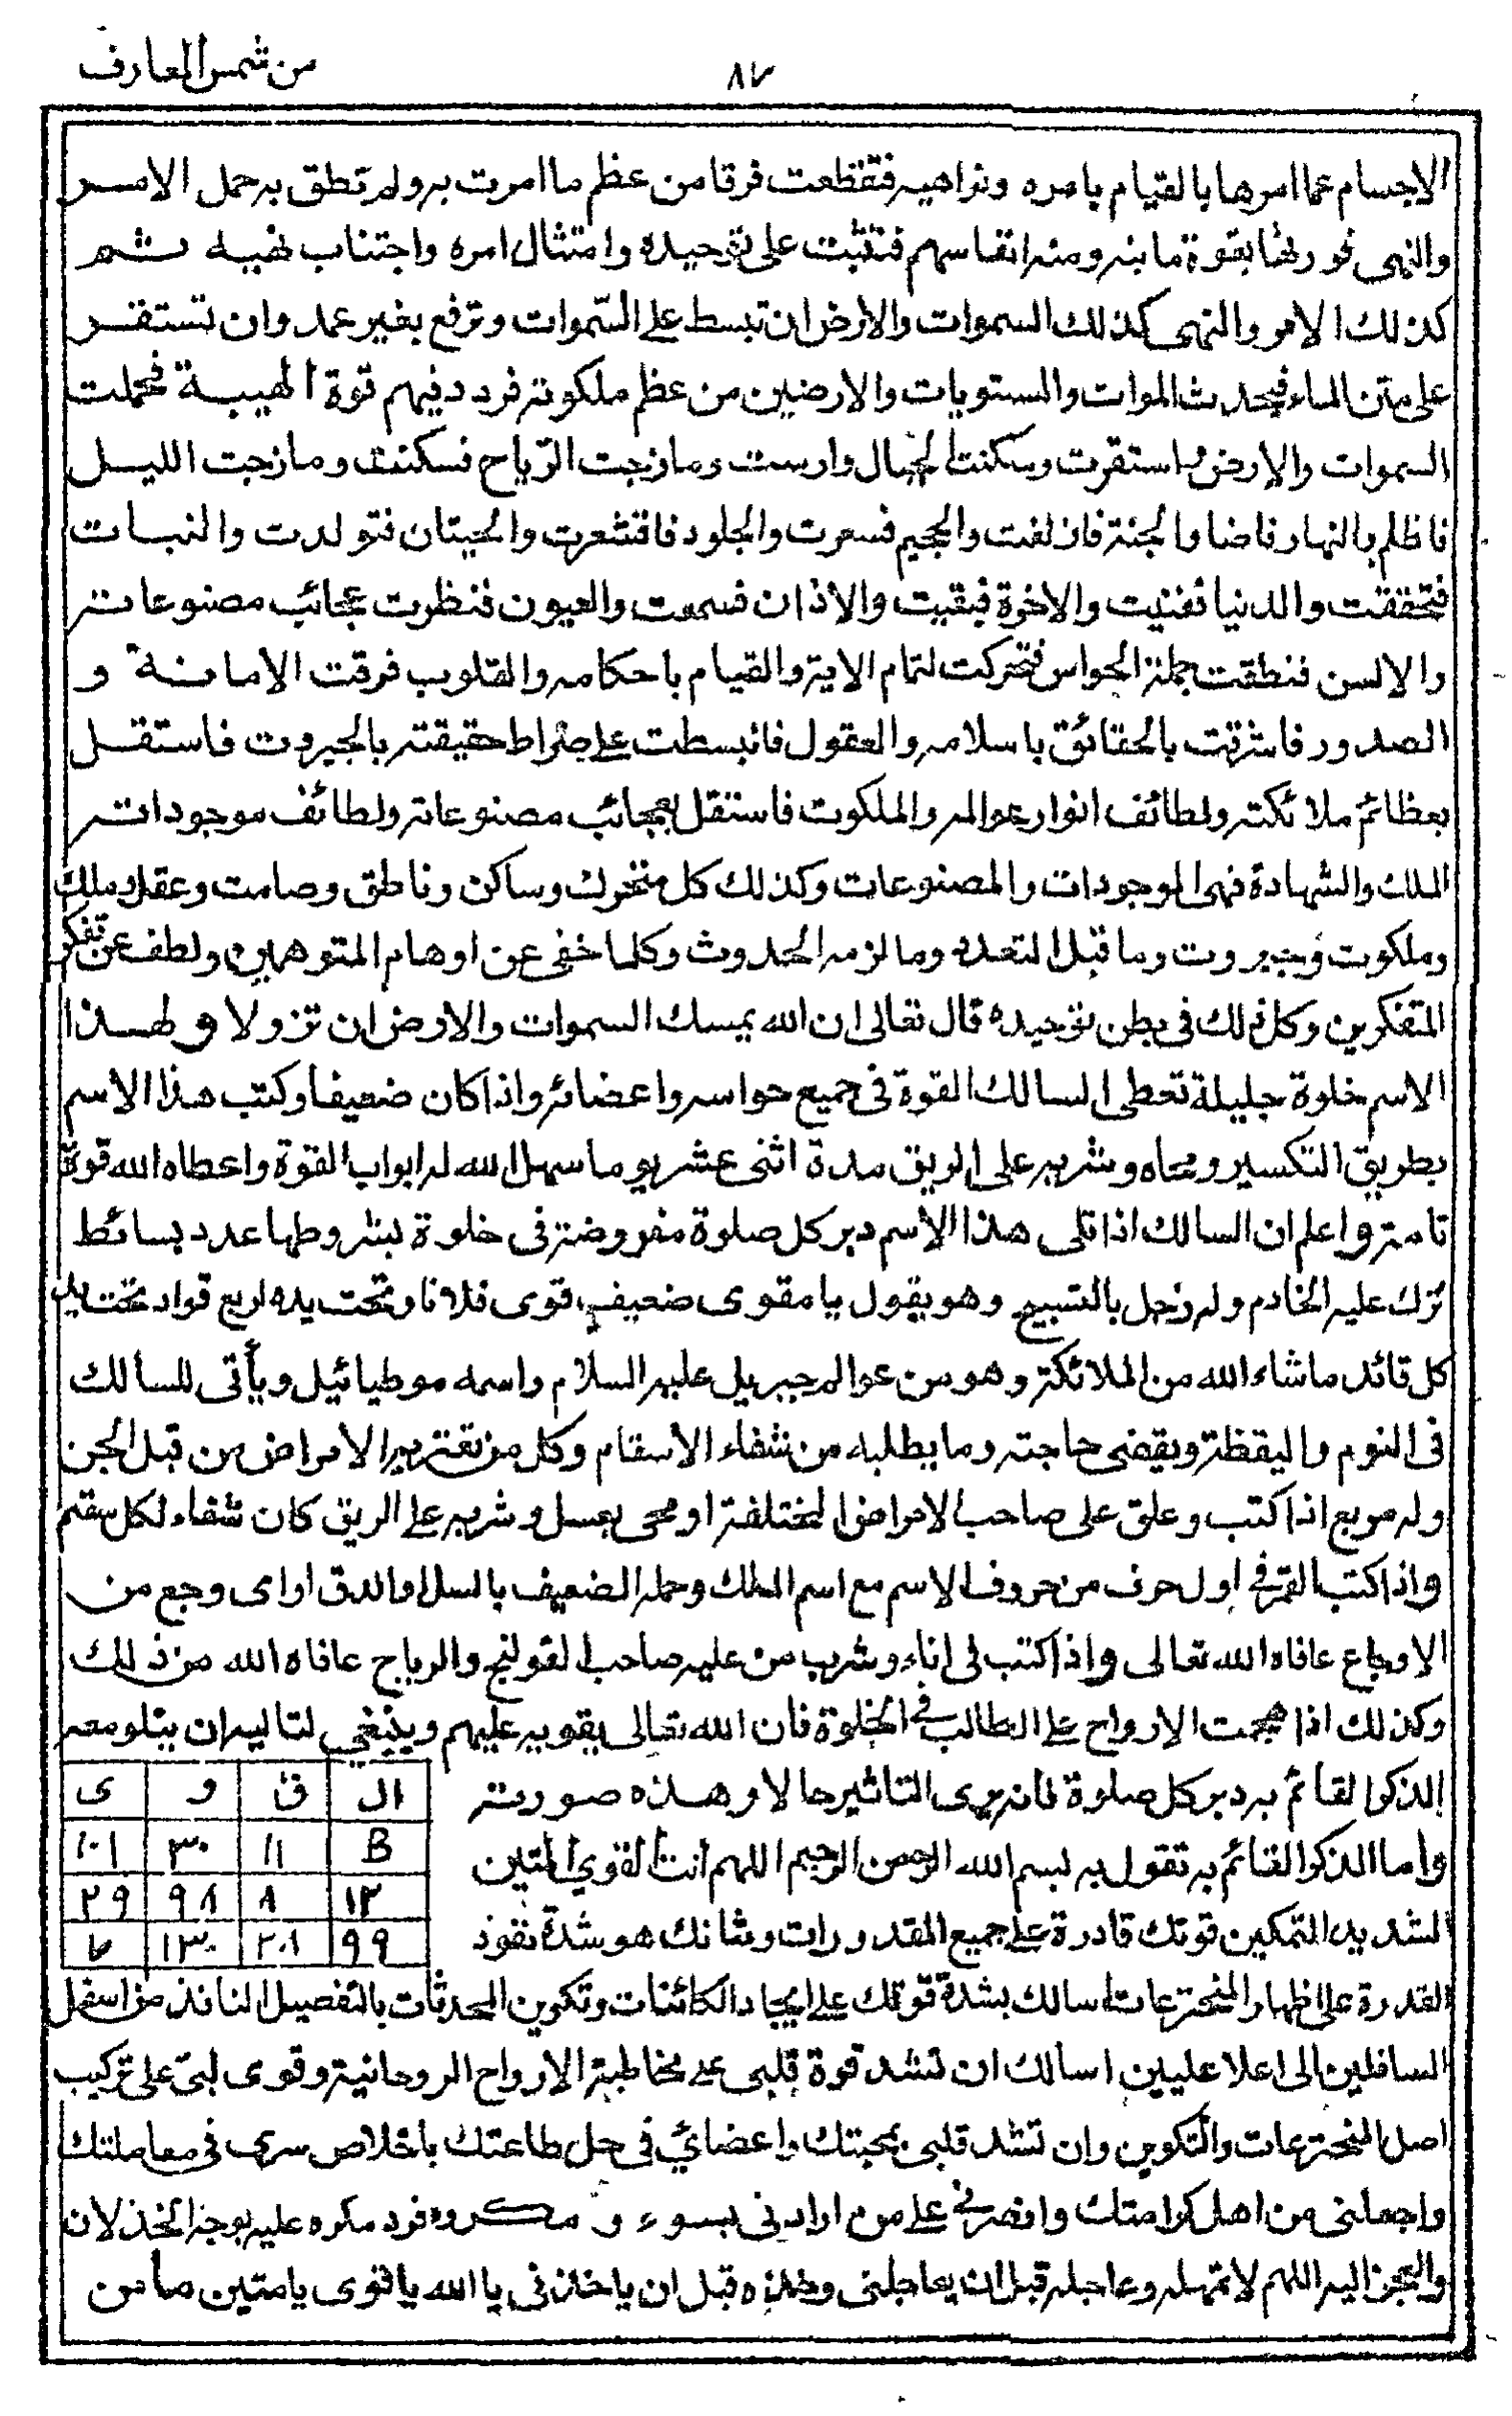 من شمس المعارف
٨٧
الاجسام عما امرها بالقيام بامره ونواهيه فتقظعت فرقا من عظم ما امرت به ولم تطق به حمل الامر
والنهى بقوة ومنه انفاسهم فتثبت على توحيده وامتثال امره واجتناب نهيه ثم
كذلك الامر والنهى كذلك السموات والارض ان تبسط على السموات وترفع بغير عمد وان تستقر
على متن الماء والمستويات والارضين من عظم ملكوته فردد فيهم قوة الهيبة فحملت
السموات والارض استقرت وسكنت الجبال وارست ومازجت الرياح فسكنت ومازجت الليل
فاظلم بالنهار فاضا والجنة فازلفت والجحيم فسعرت والجلود فاقشعرت والحيتان فتولدت والنبات
فتحققت والدنيا ففنيت والاخرة فبقيت والاذان فسمعت والعيون فنظرت عجائب مصنوعاته
والالسن فنطقت جملة الحواس فتحركت لتمام الاية والقيام باحكامه والقلوب فرقت الامانة و
الصدور فاشرقت بالحقائق باسلامه والعقول فانبسطت على صراط حقيقته بالجبروت فاستقل
بعظائم ملائكته ولطائف انوار عوالمه والملكوت فاستقل بعجائب مصنوعاته ولطائف موجوداته
الملك والشهادة فهى الموجودات والمصنوعات وكذلك كل متحرك وساكن وناطق وصامت وعقل وملك
وملكوت وجبروت وما قبل التعدد وما لزمه الحدوث وكلما خفى عن اوهام المتوهمين ولطف عن تفكر
المتفكرين وكل ذلك فى بطن توحيده قال تعالى ان الله يمسك السموات والارض ان تزولا و لهذا
الاسم خلوة جليلة تعطى السالك القوة فى جميع حواسه واعضائه واذا كان ضعيفا وكتب هذا الاسم
بطريق التكسير ومحاه وشربه على الريق مدة اثنى عشر يوما سهل الله له ابواب القوة واعطاه الله قوة
تامة واعلم ان السالك اذا تلى هذا الاسم دبر كل صلوة مفروضة فى خلوة بشروطها عدد بسائط
نزل عليه الخادم وله زجل بالتسبيح وهو يقول يا مقوى ضعيف قوى فلانا وتحت يده اربع قواد تحت يد
كل قائد ما شاء الله من الملائكة وهو من عوالم جبريل عليه السلام واسمه موطيائيل ويأتى للسالك
فى النوم واليقظة ويقضى حاجته وما يطلبه من شفاء الاسقام وكل من تعتريه الامراض من قبل الجن
وله مربع اذا كتب وعلق على صاحب الامراض المختلفة او محى بعسل وشربه على الريق كان شفاء لكل سقم
واذا كتب القمر فى اول حرف من حروف الاسم مع اسم الملك وحمله الضعيف بالسل او الدق او اى وجع من
الاوجاع عافاه الله تعالى واذا كتب فى اناء وشرب من عليه صاحب القولنج والرياح عافاه الله من ذلك
وكذلك اذا هجمت الارواح على الطالب فى الخلوة فان الله تعالى يقويه عليهم وينبغي لتاليه ان يتلو معه
الذكر القائم به دبر كل صلوة فانه يرى التاثير حالا وهذه صورته
ال ق و ى
B ١١ ٣٠ ١٠١
١٢ ٨ ٩٨ ٢٩
٩٩ ٢٠٨ ١٣٠ ٧
واما الذكر القائم به تقول به بسم الله الرحمن الرحيم اللهم انت القوي المتين
الشديد التمكين قوتك قادرة على جميع المقدورات وشانك هو شدة نفوذ
القدرة على اظهار المخترعات اسالك بشدة قوتك على ايجاد الكائنات وتكوين المحدثات بالتفصيل النافذ من اسفل
السافلين الى اعلا عليين اسالك ان تشد قوة قلبى على مخاطبة الارواح الروحانية وقوى لبى على تركيب
اصل المخترعات والتكوين وان تشد قلبى بمحبتك واعضائي فى حل طاعتك باخلاص سرى فى معاملتك
واجعلنى من اهل كرامتك وانصرنى على من ارادنى بسوء و مكروه فرد مكره عليه بوجه الخذلان
والعجز اليه اللهم لا تمهله وعاجله قبل ان يعاجلنى وخذه قبل ان ياخذنى يا الله يا قوى يا متين يا من